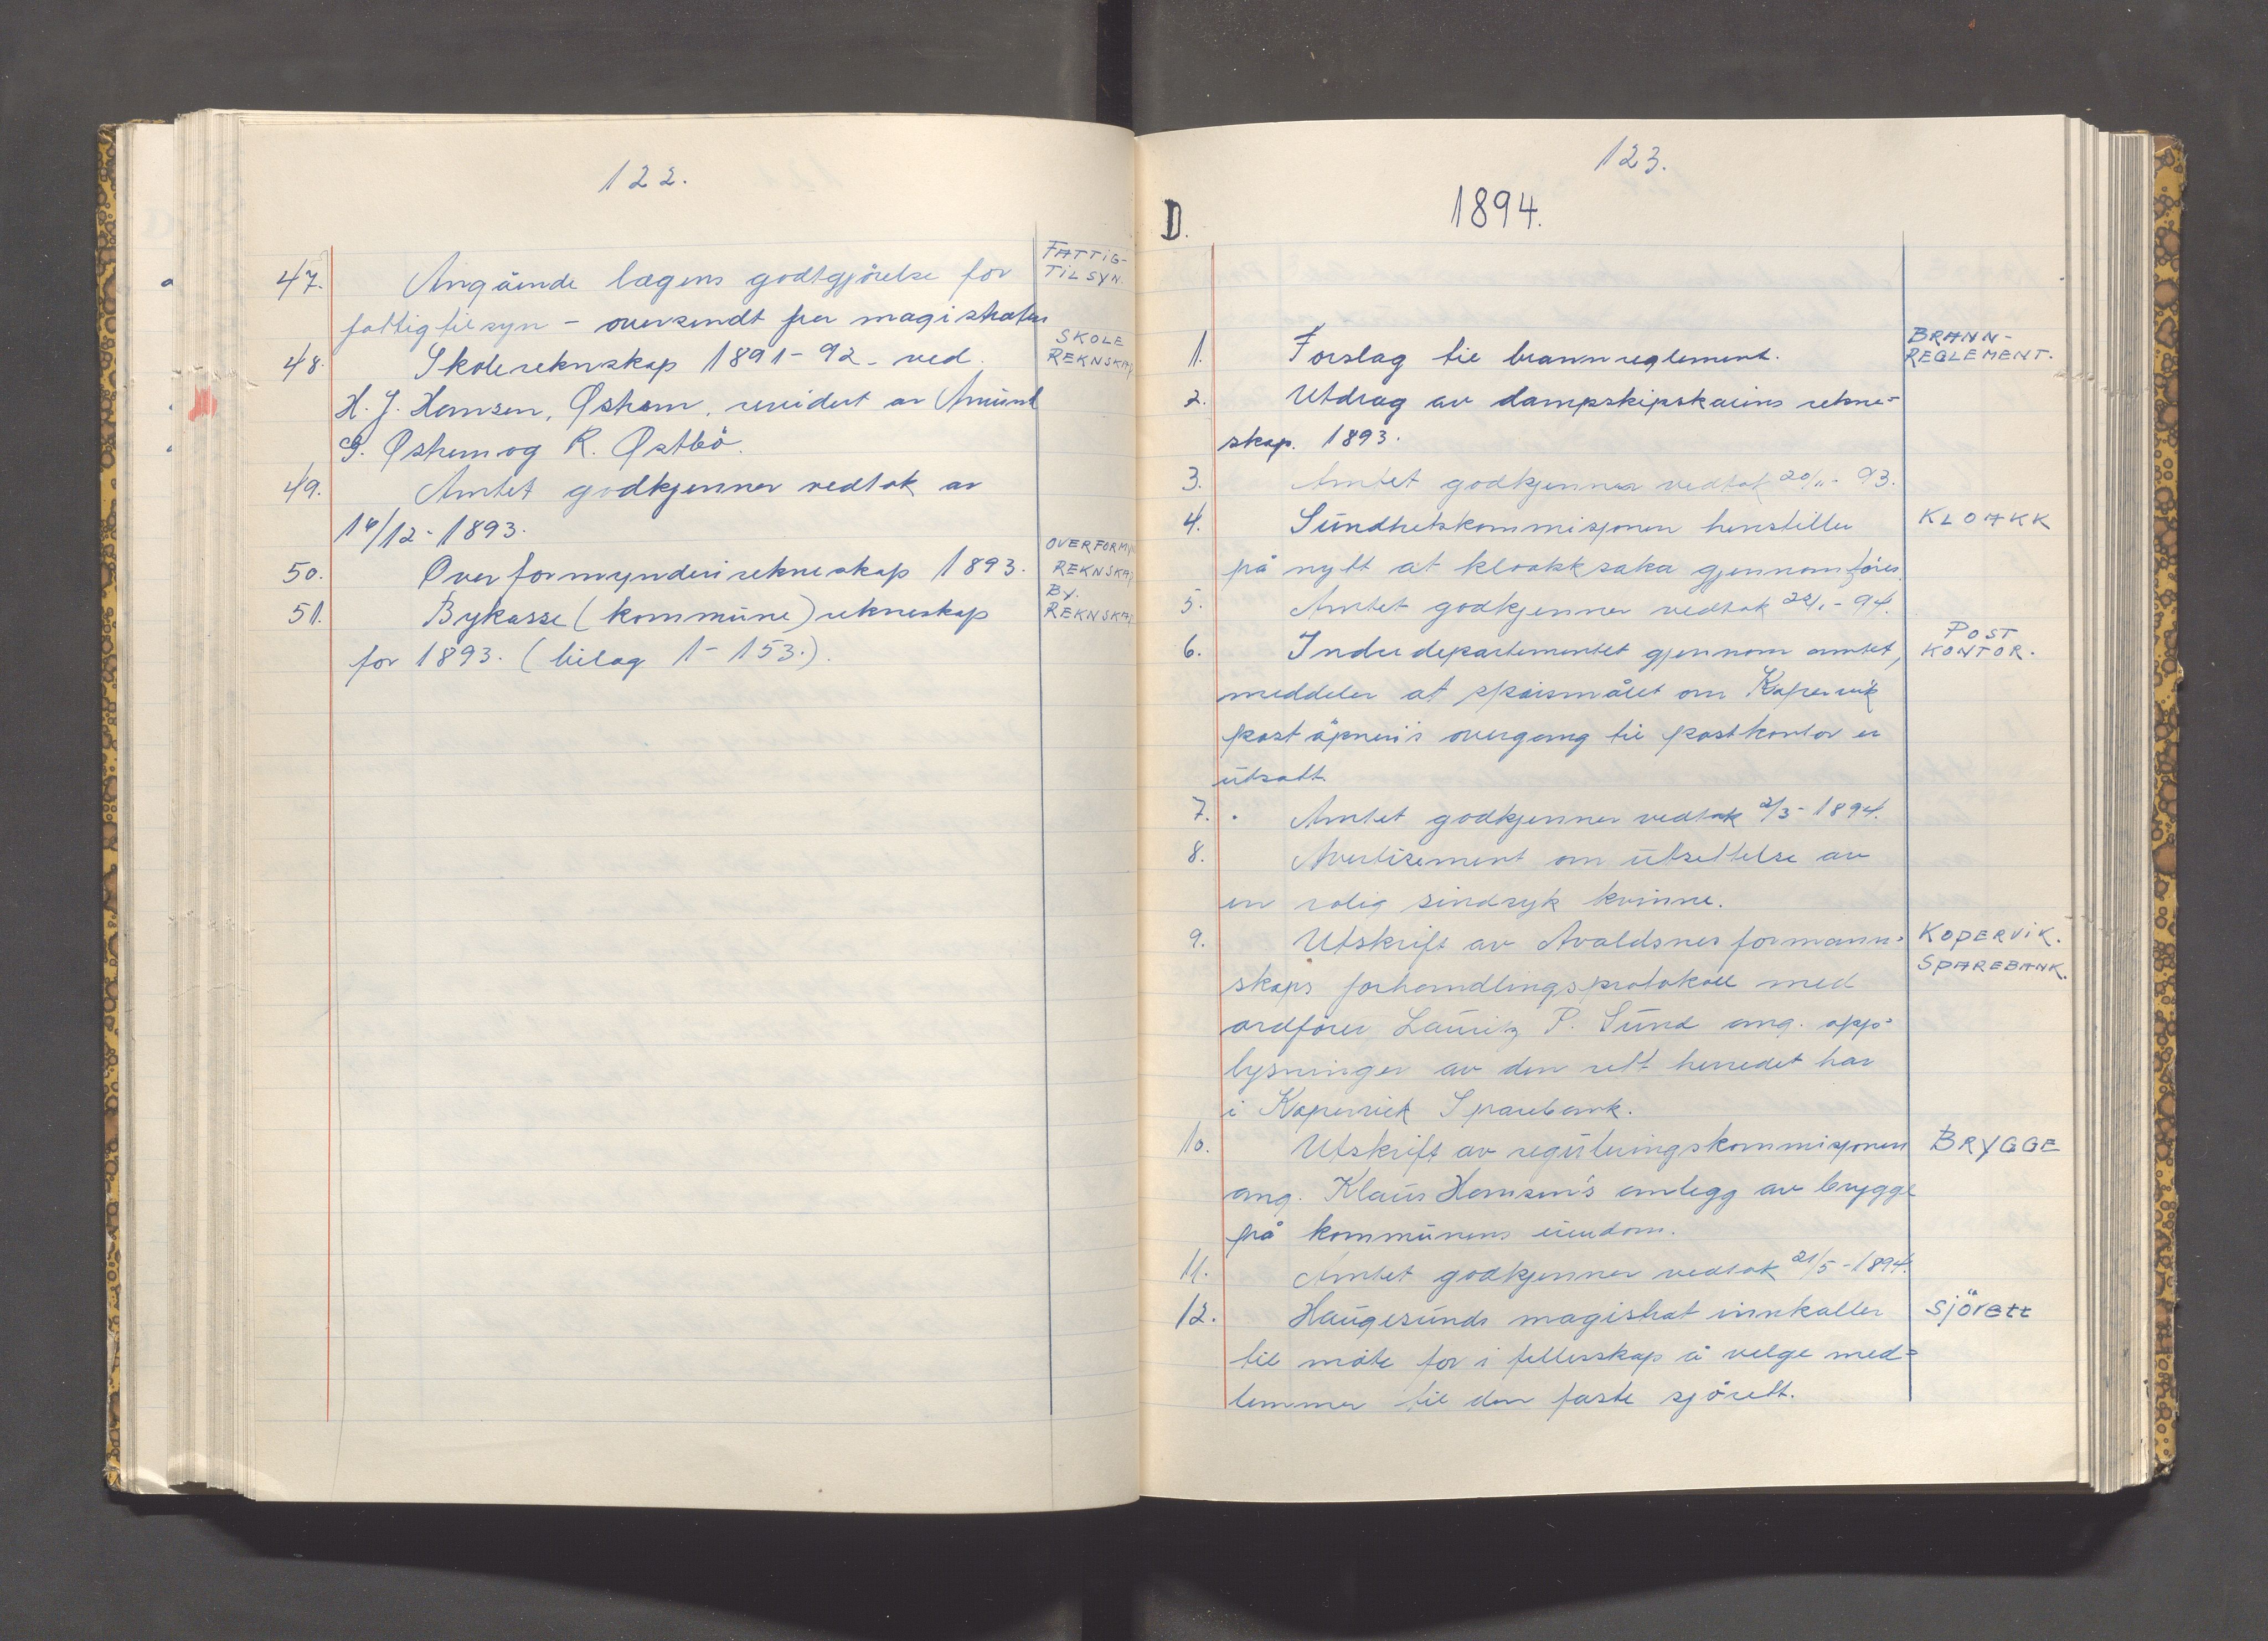 122.
47. Angående lægens godtgjörelse for FATTIG-
TILSYN.
fattigtilsyn - oversendt fra magistraten
48. Skolereknskap 1891-92 - ved SKOLE
REKNSKAP
H. J. Hansen, Østrem, revidert av Amund
G. Østrem og R. Østbö.
49. Amtet godkjenner vedtak av
16/12-1893.
50. Overformynderirekneskap 1893. OVERFORMYN
REKNSKAP
51. Bykasse (kommune) rekneskap BY.
REKNSKAP
for 1893. (bilag 1-153.).
123.
D. 1894.
1. Forslag til brannreglement. BRANN-
REGLEMENT.
2. Utdrag av dampskipskaiens rekne-
skap. 1893.
3. Amtet godkjenner vedtak 20/11-93.
4. Sundhetskommisjonen henstiller KLOAKK
på nytt at kloakksaka gjennomföres.
5. Amtet godkjenner vedtak 22/1-94.
6. Indredepartementet gjennom amtet, POST
KONTOR.
meddeler at spörsmålet om Kopervik
poståpneri's overgang til postkontor er
utsatt.
7. Amtet godkjenner vedtak 2/3-1894.
8. Avertisement om utsettelse av
en rolig sindsyk kvinne.
9. Utskrift av Avaldsnes formann- KOPERVIK.
SPAREBANK.
skaps forhandlingsprotokoll med
ordförer Lauriz P. Sund ang. opp-
lysninger av den rett herredet har
i Kopervik Sparebank.
10. Utskrift av reguleringskommisjonen BRYGGE
ang. Klaus Hansen's anlegg av brygge
på kommunens eiendom.
11. Amtet godkjenner vedtak 21/5-1894.
12. Haugesunds magistrat innkaller Sjörett
til möte for i fellesskap å velge med-
lemmer til den faste sjörett.